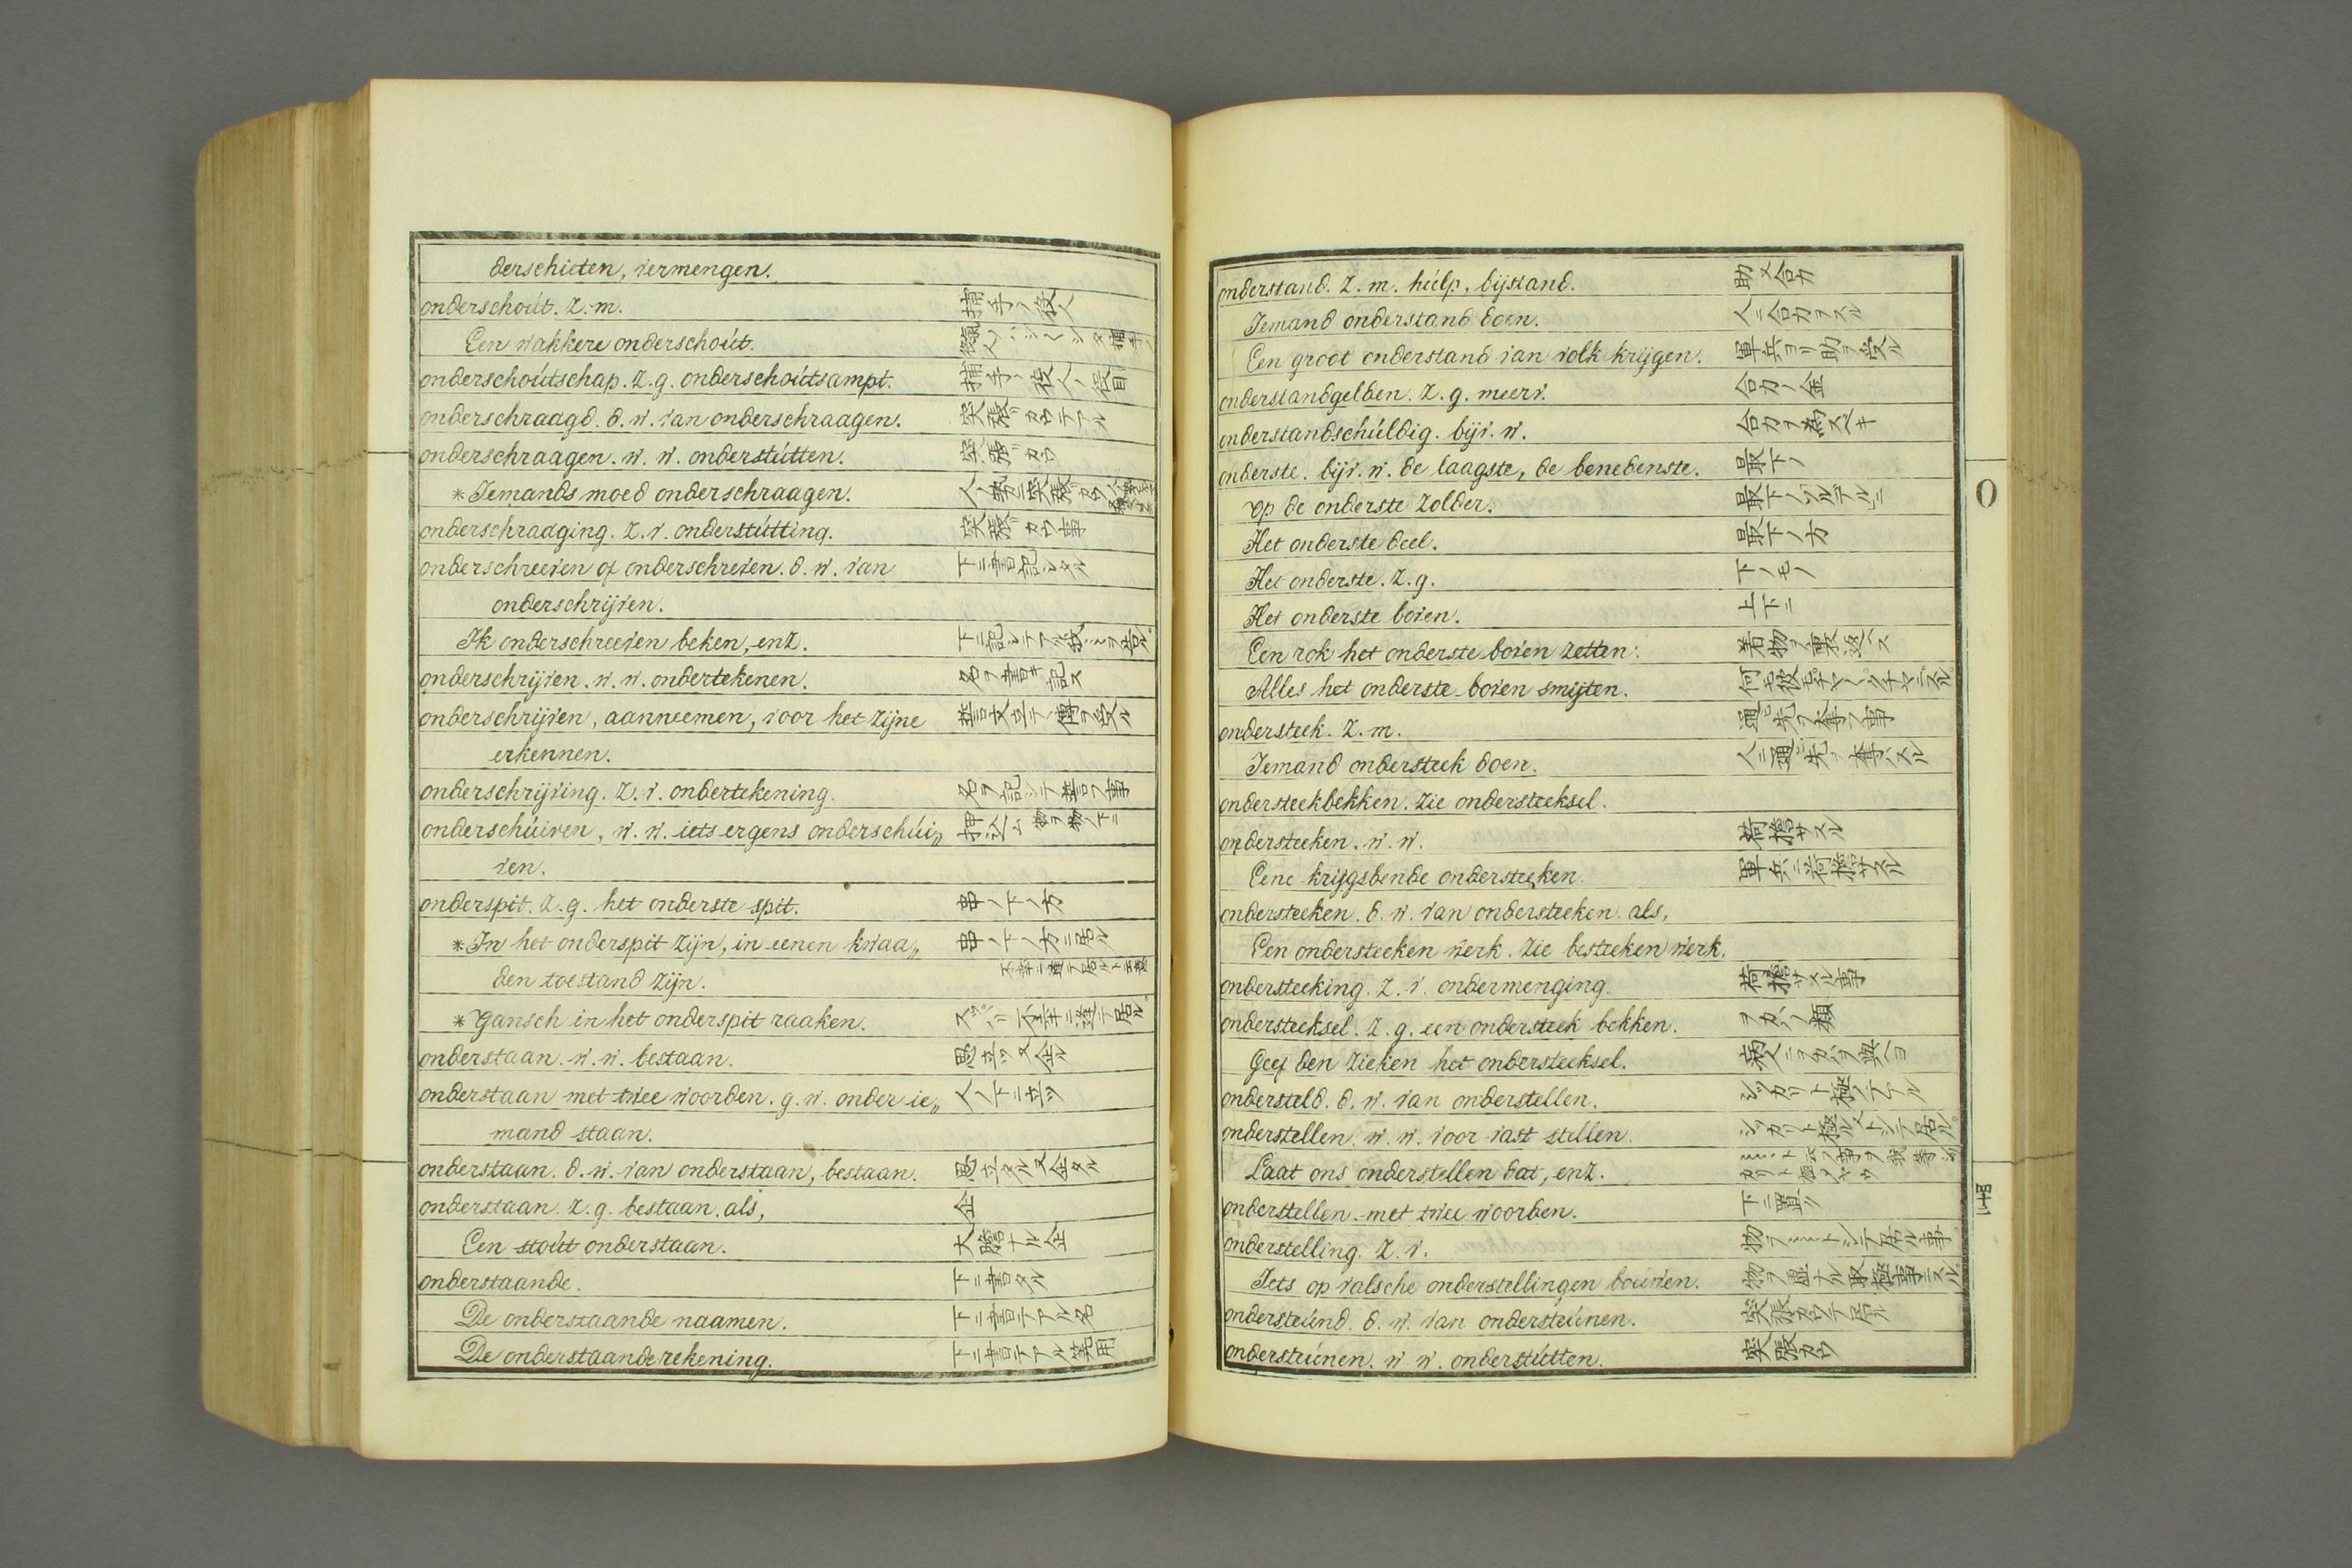 derschieten, vermengen.
onderschoút. z. m. 捕手ノ役人
Een wakkere onderschoút.
onderschoútschap. z. g. onderschoútsampt. 捕手ノ役人ノ役目
onderschraagd. d. w. van onderschraagen. 突張カウテアル
onderschraagen. w. w. onderstútten. 突張カウ
*Iemands moed onderschraagen.
onderschraaging. z. v. onderstútting. 突張カウ事
onderschreeven of onderschreven. d. w. van 下ニ書記シタル
onderschrijven.
Ik onderschreeven beken, enz.
onderschrijven. w. w. ondertekenen. 名ヲ書キ記ス
onderschrijven, aanneemen, voor het zijne
erkennen.
onderschrijving. z. v. ondertekening. 名ヲ記シテ誓フ事
onderschúiven, w. w. iets ergens onderschúi„ 押込ム 物ヲ物ノ下ニ
ven.
onderspit. z. g. het onderste spit. 串ノ下ノ方
*In het onderspit zijn, in eenen kwaa„ 串ノ下ノ方ニ居ル
den toestand zijn.
*Gansch in het onderspit raaken.
onderstaan. w. w. bestaan. 思立ツ又企ル
onderstaan met twee woorden. g. w. onder ie„ 人ノ下ニ立ツ
mand staan.
onderstaan. d. w. van onderstaan, bestaan. 思立タル又企タル
onderstaan. z. g. bestaan. als, 企
Een stoút onderstaan. 大膽ナル企
onderstaande. 下ニ書タル
De onderstaande naamen. 下ニ書テアル名
De onderstaande rekening. 下ニ書テアル算用
onderstand. z. m. húlp, bijstand. 助 又合力
Iemand onderstand doen. 人ニ合力ヲスル
Een groot onderstand van volk krijgen. 軍兵ヨリ助ヲ受ル
onderstandgelden. z. g. meerv. 合力ノ金
onderstandschúldig. bijv. w. 合力ヲ為スベキ
onderste. bijv. w. de laagste, de benedenste. 最下ノ
Op de onderste zolder. 最下ノソルデルニ
Het onderste deel. 最下ノ方
Het onderste. z. g. 下ノモノ
Het onderste boven. 上下ニ
Een rok het onderste boven zetten. 着物ヲ裏返ス
Alles het onderste boven smijten.
ondersteek. z. m.
Iemand ondersteek doen.
ondersteekbekken. zie ondersteeksel.
ondersteeken. w. w. 荷擔サスル
Eene krijgsbende ondersteeken. 軍兵ニ荷擔サスル
ondersteeken. d. w. van ondersteeken. als,
Een ondersteeken werk. zie besteeken werk.
ondersteeking. z. v. ondermenging. 荷擔サスル事
ondersteeksel. z. g. een ondersteek bekken. ヲカハノ類
Geef den zieken het ondersteeksel. 病人ニヲカハヲ與ヘヨ
ondersteld. d. w. van onderstellen. シッカリト極テアル
onderstellen. w. w. voor vast stellen.
Laat ons onderstellen dat, enz.
onderstellen. met twee woorden. 下ニ置ク
onderstelling. z. v.
Iets op valsche onderstellingen boúwen.
ondersteúnd. d. w. van ondersteúnen. 突張カウテ居ル
ondersteúnen. w. w. onderstútten. 突張カウ
O